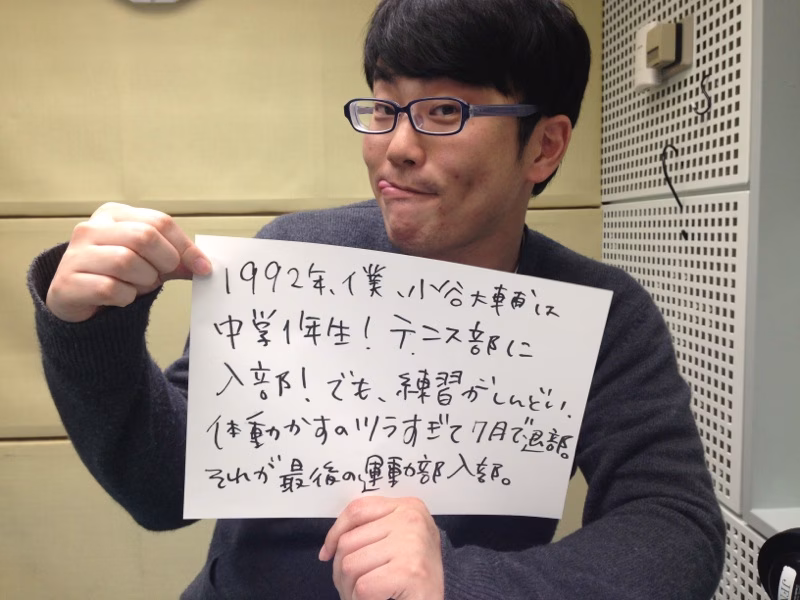 1992年、僕、小谷大輔は
中学1年生！テニス部に
入部！でも、練習がしんどい、
体動かすのツラすぎて7月で退部。
それが最後の運動部入部。